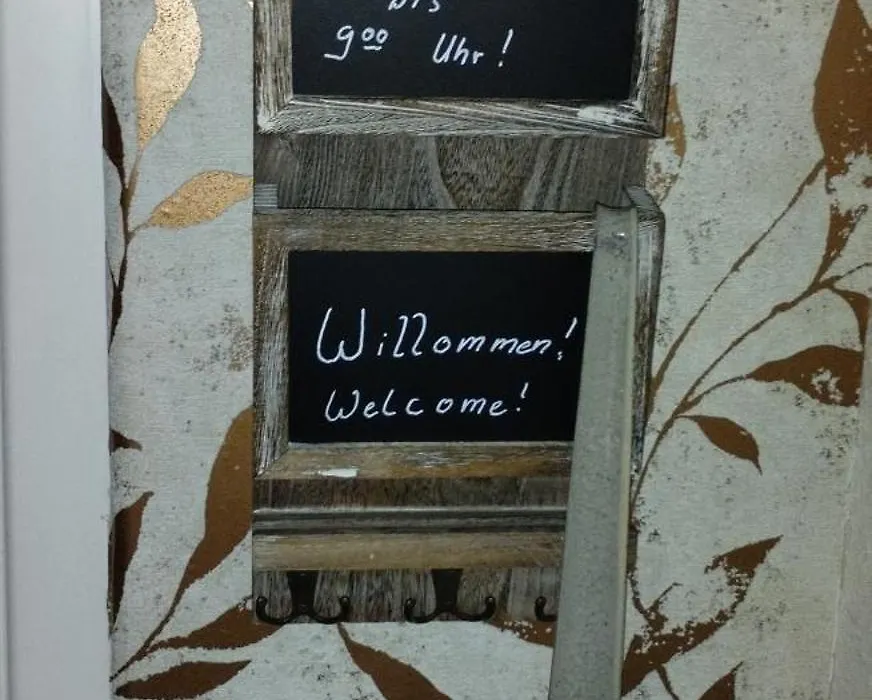 bis
9⁰⁰ Uhr!
Willommen!
Welcome!